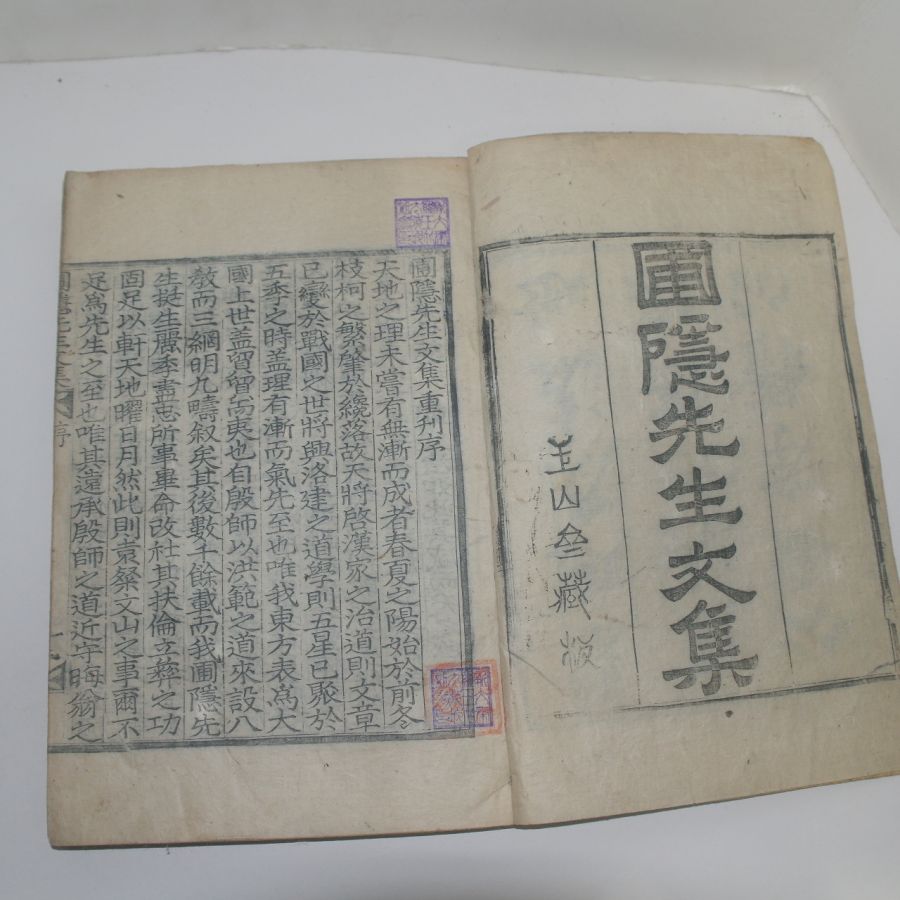 圃隱先生文集
圭山叄藏板
圃隱先生文集重刊序
天地之理未嘗有無漸而成者春夏之陽始於前冬
枝柯之繁肇於纔落故天將啓漢家之治道則文章
已變於戰國之世將興洛建之道學則五星已聚於
五季之時盖理有漸而氣先至也唯我東方表爲大
國上世盖貿貿焉夷也自殷師以洪範之道來設八
敎而三綱明九疇叙矣其後數千餘載而我圃隱先
生挺生麗季盡忠所事畢命改社其扶倫立彝之功
固足以軒天地曜日月然此則袁粲文山之事爾不
足爲先生之至也唯其遠承殷師之道近守晦翁之
圃隱先生文集 序 一